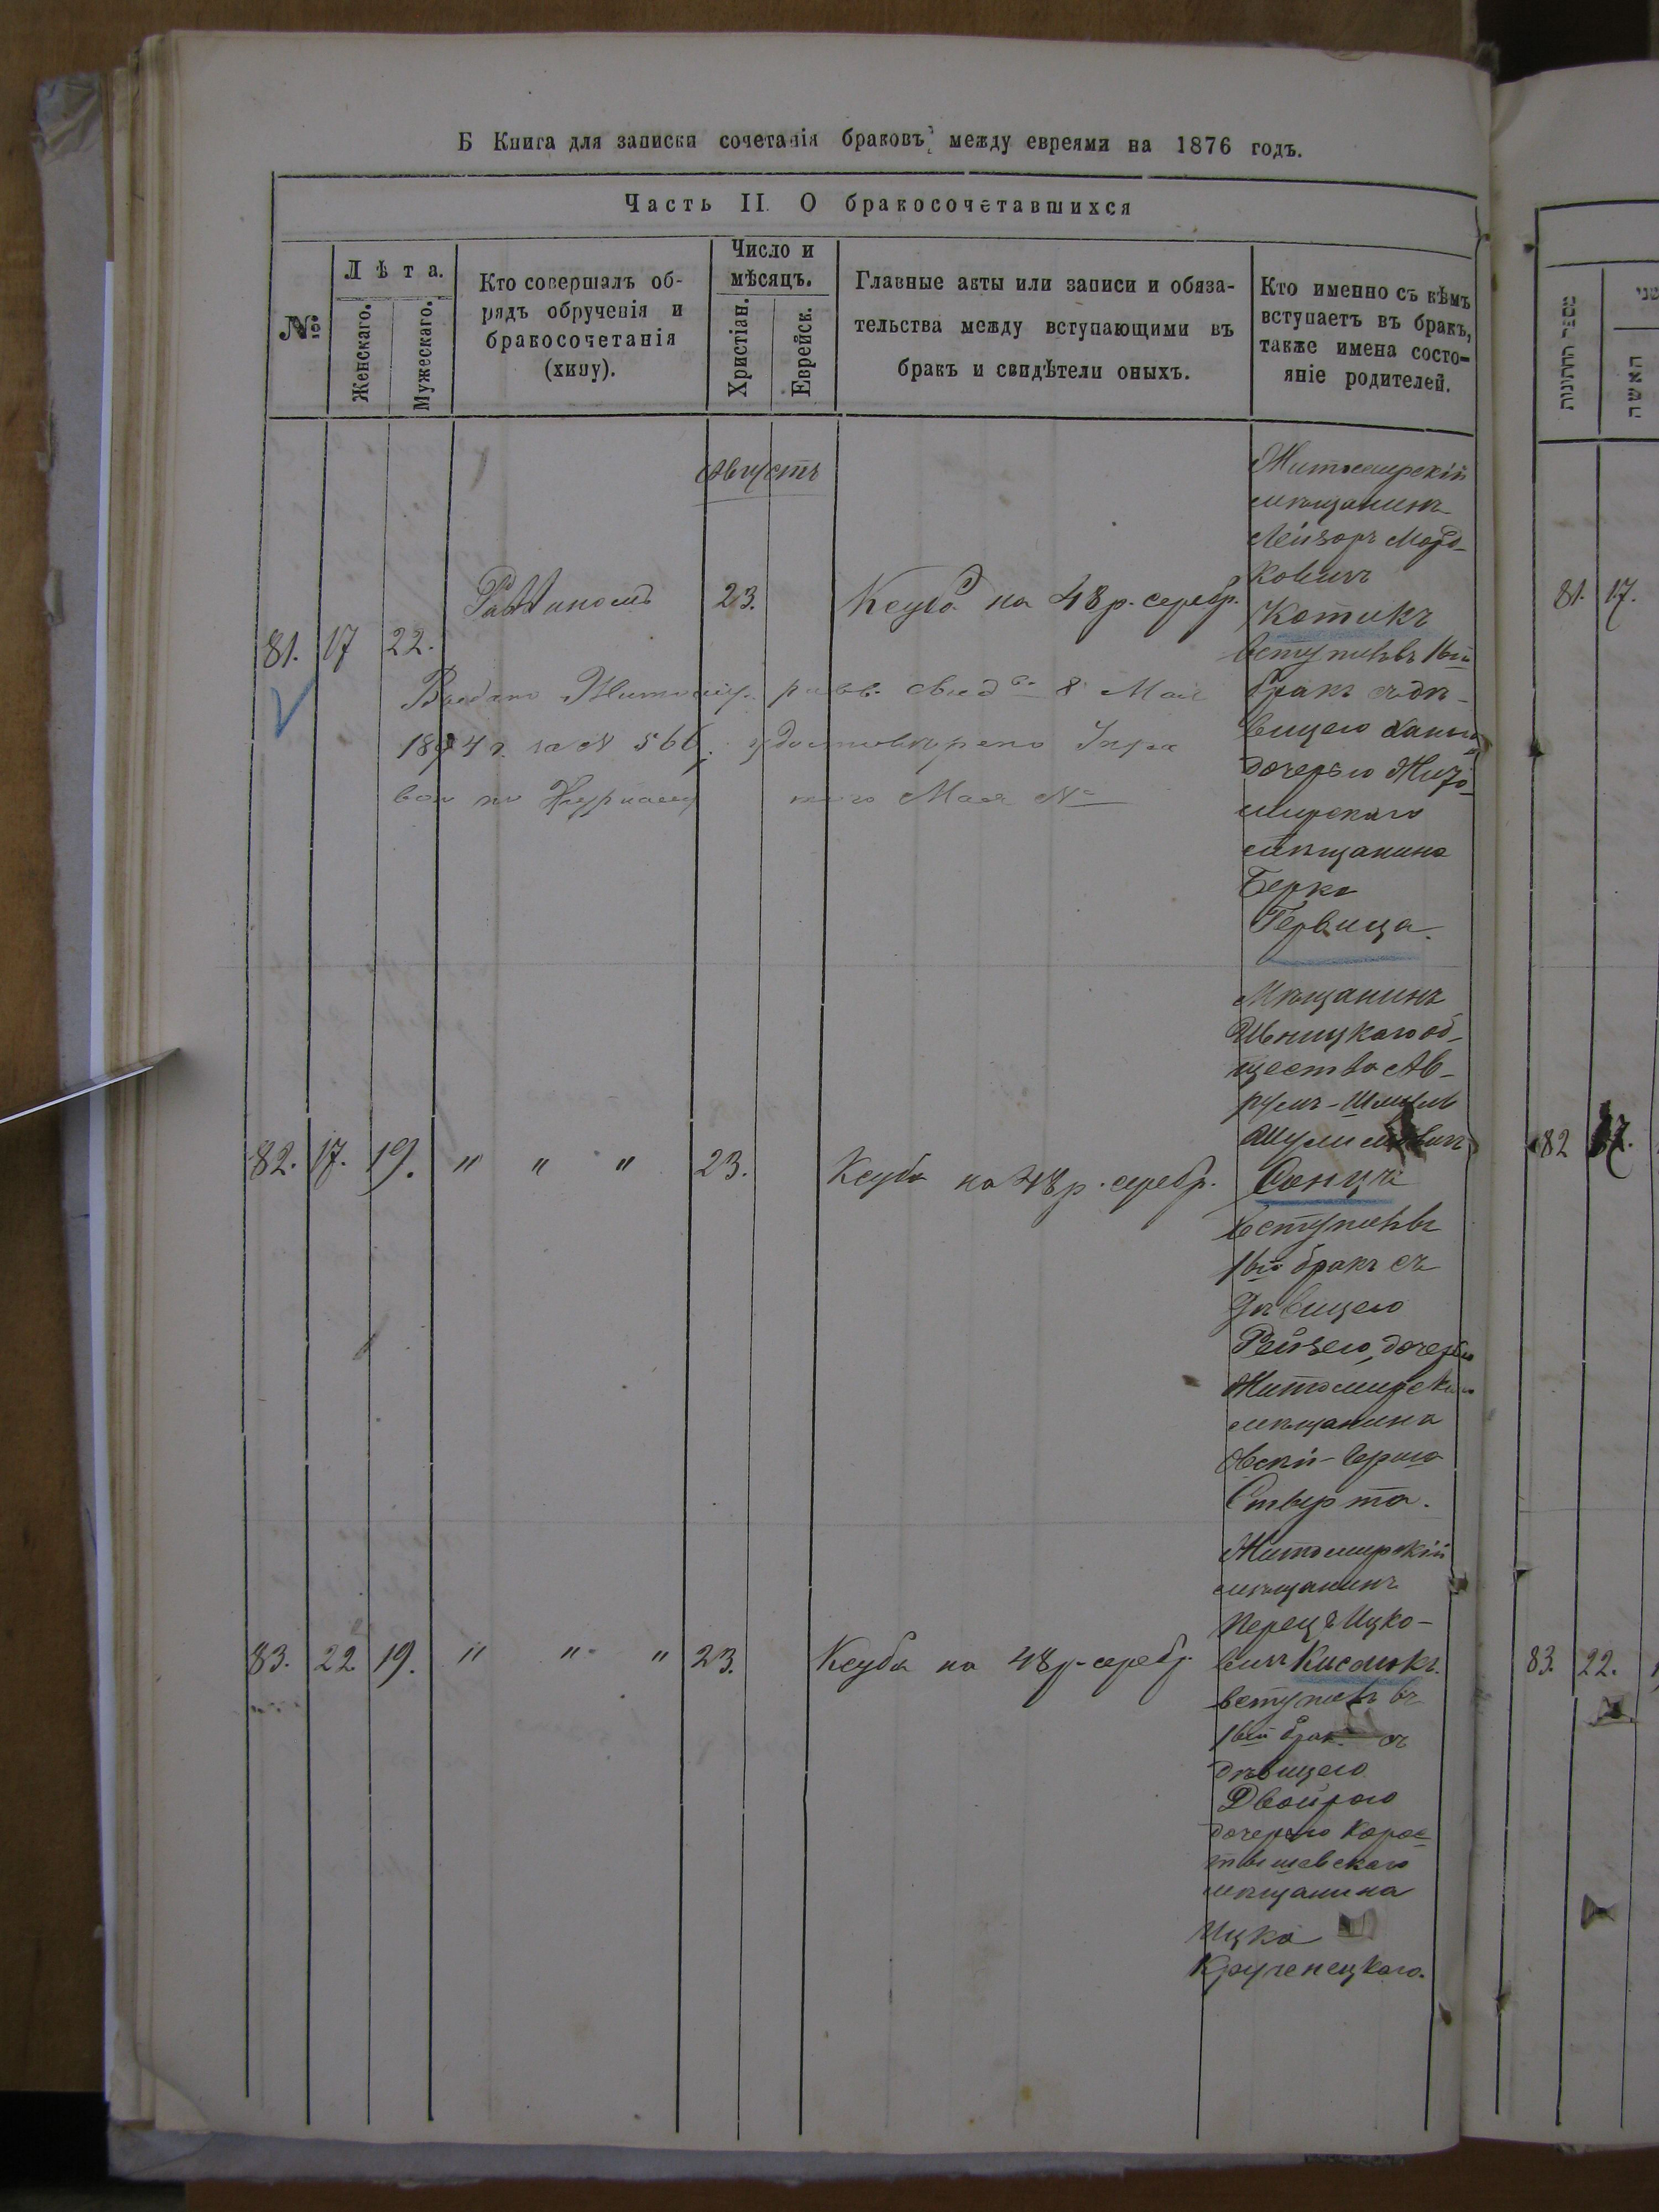 Б Книга для записки сочетанія браковъ между евреями на 1876 годъ.
Часть II. О бракосочетавшихся
№
Лѣта.
Женскаго.
Мужескаго.
Кто совершалъ об-
рядъ обрученія и
бракосочетанія
(хипу).
Число и
мѣсяцъ.
Христіан.
Еврейск.
Главные акты или записи и обяза-
тельства между вступающими въ
бракъ и свидѣтели оныхъ.
Кто именно съ кѣмъ
вступаетъ въ бракъ,
также имена состо-
яніе родителей.
Августъ
81. 17 22. Раввиномъ 23. Кеуба на 48 р. серебр.
Житомирскій
мѣщанинъ
Лейзоръ Мордо-
ковичъ
Котикъ
вступилъ въ 1ый
бракъ съ дѣ-
вицею Ханою
дочерью Жито-
мирскаго
мѣщанина
Берка
Гервица.
Выдано Житомир. равв. свид 8 Мая
1894 г. за № 566, удостоверено
по Журналу Мая №
82. 17. 19. " " " 23. Кеуба на 48 р. серебр.
Мѣщанинъ
Ивницкаго об-
щества Ав-
румъ-Шмуль
Сонцъ
вступилъ въ
1ый бракъ съ
дѣвицею
Рейзею, дочерью
Житомирскаго
мѣщанина
83. 22 19. " " " 23. Кеуба на 48 р. серебр.
Житомирскій
мѣщанинъ
Перецъ Ицко-
вичъ Кисликъ.
вступилъ въ
1ый брак съ
дѣвицею
Двойрою
дочерью Корос-
тышевскаго
мѣщанина
Ицка
Крученецкаго.
מספר החתונות
האשה
81. 17.
82 17.
83. 22.